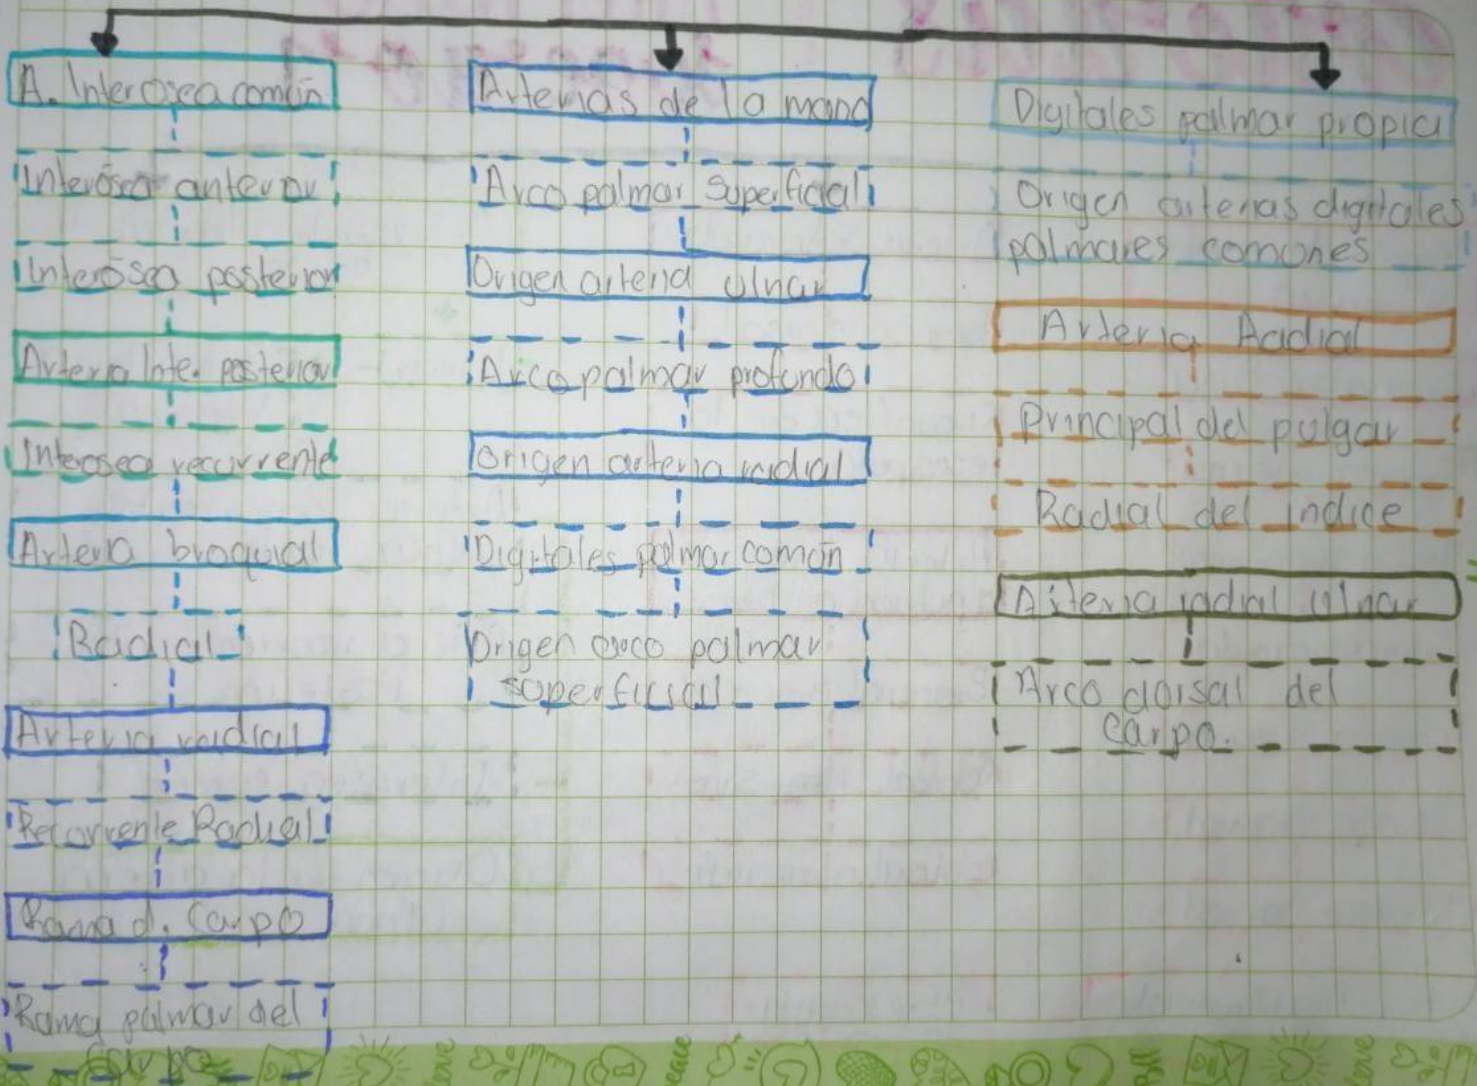 A. Interosea común
Interósea anterior
Interósea posterior
Arteria Inte. posterior
Interosea recurrente
Arteria broquial
Radial
Arteria radial
Recurrente Radial
Rama d. Carpo
Rama palmar del
carpo
Arterias de la mano
Arco palmar superficial
Origen arteria ulnar
Arco palmar profundo
Origen arteria radial
Digitales palmar común
Origen arco palmar
superficial
Digitales palmar propia
Origen arterias digitales
palmares comunes
Arteria Radial
Principal del pulgar
Radial del indice
Arteria radial ulnar
Arco dorsal del
carpo.